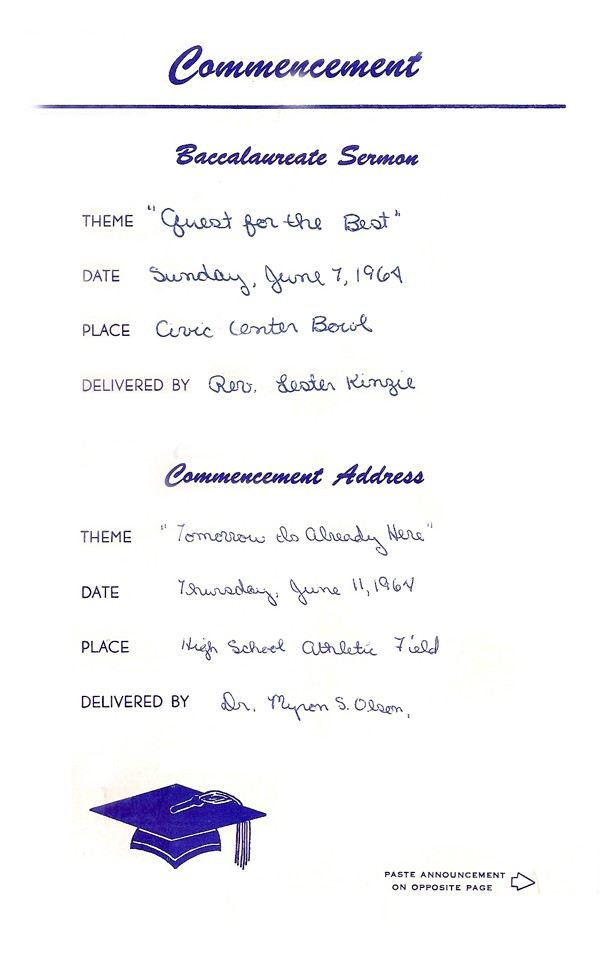 Commencement
Baccalaureate Sermon
THEME "Quest for the Best"
DATE Sunday, June 7, 1964
PLACE Civic Center Bowl
DELIVERED BY Rev. Lester Kinzie
Commencement Address
THEME "Tomorrow Is Already Here"
DATE Thursday, June 11, 1964
PLACE High School Athletic Field
DELIVERED BY Dr. Myron S. Olson.
PASTE ANNOUNCEMENT
ON OPPOSITE PAGE